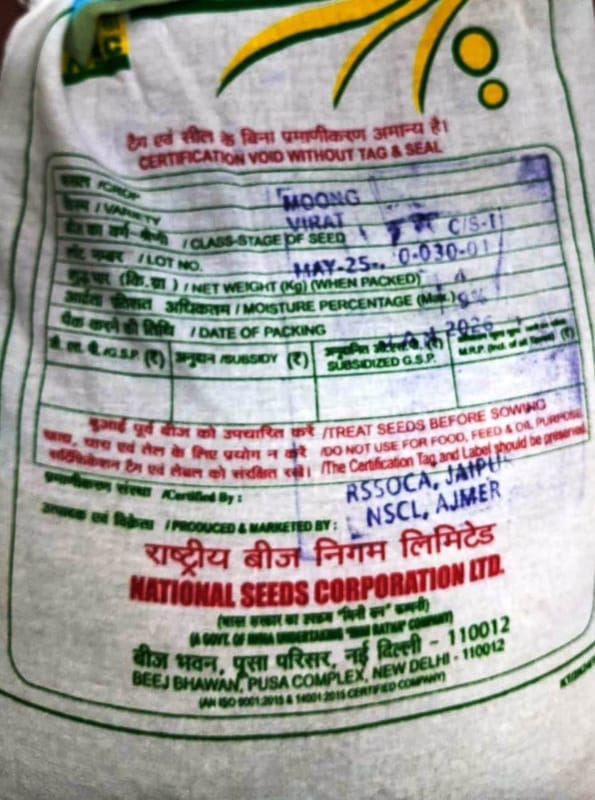 टैग एवं सील के बिना प्रमाणीकरण अमान्य है।
CERTIFICATION VOID WITHOUT TAG & SEAL
/CROP MOONG
/ VARIETY VIRAT
/ CLASS-STAGE OF SEED C/S-I
लॉट नम्बर / LOT NO. MAY-25-
(कि.ग्रा.) / NET WEIGHT (Kg) (WHEN PACKED) 4
आर्द्रता प्रतिशत अधिकतम / MOISTURE PERCENTAGE (Max.) 9%
पैक करने की तिथि / DATE OF PACKING 2026
जी. एस. पी./G.S.P. (₹) अनुदान /SUBSIDY (₹) SUBSIDIZED G.S.P. (₹) M.R.P. (₹)
बुआई पूर्व बीज को उपचारित करें /TREAT SEEDS BEFORE SOWING
खाद्य, चारा एवं तेल के लिए प्रयोग न करें /DO NOT USE FOR FOOD, FEED & OIL PURPOSE
सर्टिफिकेशन टैग एवं लेबल को संरक्षित रखें। /The Certification Tag and Label should be preserved
प्रमाणीकरण संस्था /Certified By : RSSOCA, JAIPU
उत्पादक एवं विक्रेता / PRODUCED & MARKETED BY : NSCL, AJMER
राष्ट्रीय बीज निगम लिमिटेड
NATIONAL SEEDS CORPORATION LTD.
(भारत सरकार का उपक्रम "मिनी रत्न" कम्पनी)
(A GOVT. OF INDIA UNDERTAKING "MINI RATNA" COMPANY)
बीज भवन, पूसा परिसर, नई दिल्ली - 110012
BEEJ BHAWAN, PUSA COMPLEX, NEW DELHI - 110012
(AN ISO 9001:2015 & 14001:2015 CERTIFIED COMPANY)